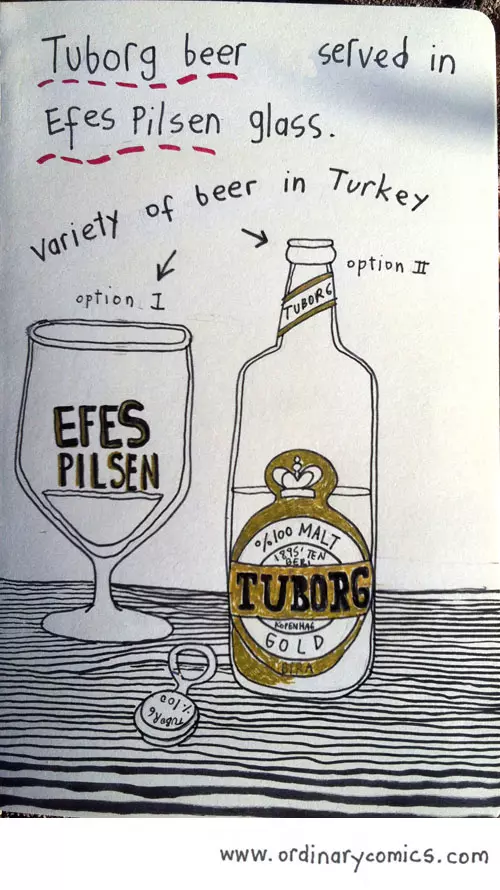 Tuborg beer served in
Efes Pilsen glass.
variety of beer in Turkey
option I
option II
TUBORG
EFES
PILSEN
%100 MALT
1895'TEN
BERİ
TUBORG
KOPENHAG
GOLD
BİRA
TUBORG
%100
www.ordinarycomics.com